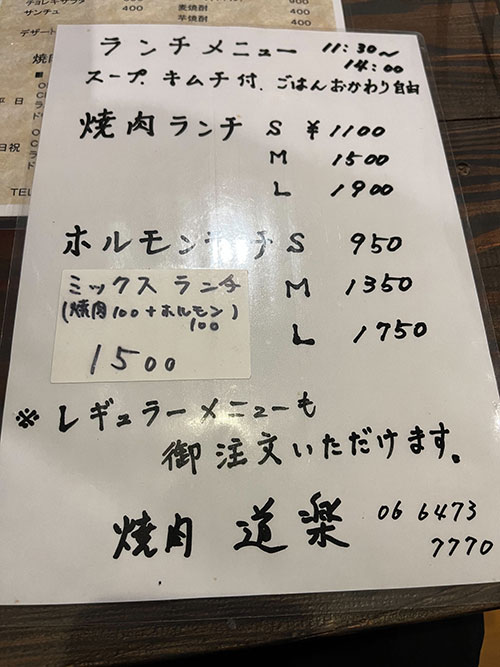 チョレギサラダ
サンチュ 400
麦焼酎 400
芋焼酎 400
デザート
焼肉
平日
日祝
TEL
ランチメニュー 11:30～
14:00
スープ、キムチ付、ごはんおかわり自由
焼肉ランチ S ¥1100
M 1500
L 1900
ホルモンランチ S 950
M 1350
L 1750
ミックスランチ
(焼肉100+ホルモン)
100
1500
※レギュラーメニューも
御注文いただけます。
焼肉 道楽 06 6473
7770